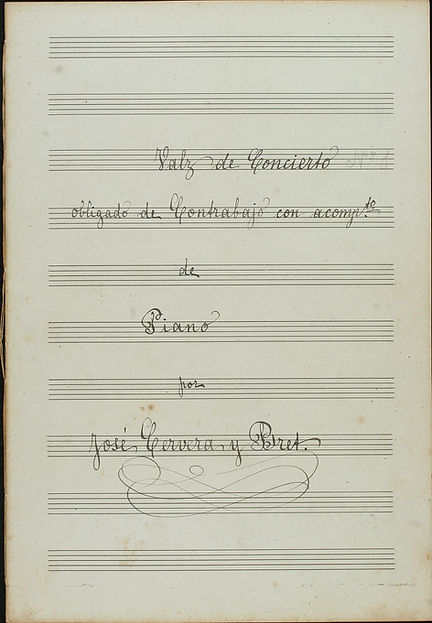 Valz de Concierto Nº 1
obligado de Contrabajo con acompto
de
Piano
por
José Cervera y Bret.